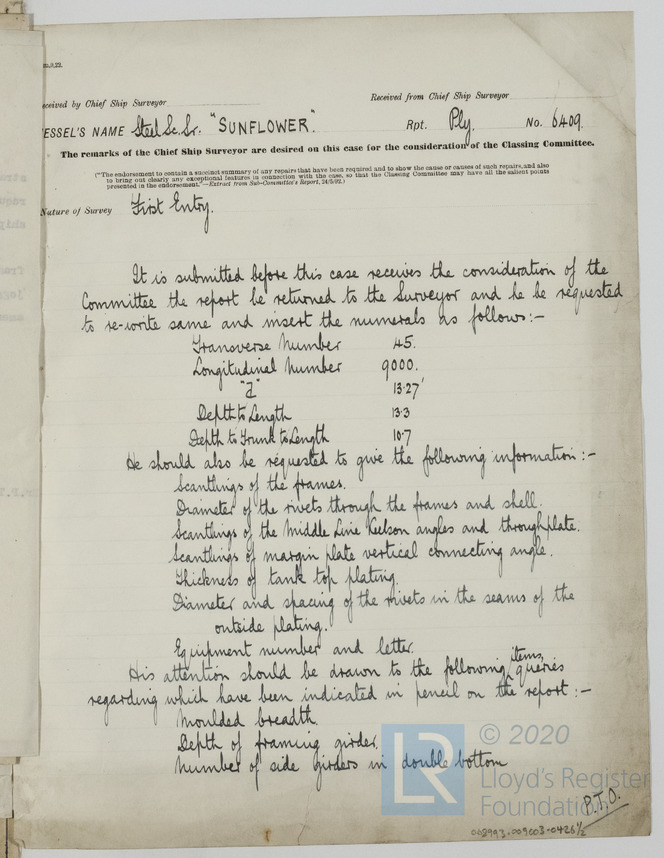 m.9.22.
eceived by Chief Ship Surveyor
Received from Chief Ship Surveyor
ESSEL'S NAME Steel Sc. Sr. "SUNFLOWER". Rpt. Ply. No. 6409.
The remarks of the Chief Ship Surveyor are desired on this case for the consideration of the Classing Committee.
("The endorsement to contain a succinct summary of any repairs that have been required and to show the cause or causes of such repairs, and also
to bring out clearly any exceptional features in connection with the case, so that the Classing Committee may have all the salient points
presented in the endorsement."—Extract from Sub-Committee's Report, 24/5/92.)
Nature of Survey First Entry.
It is submitted before this case receives the consideration of the
Committee the report be returned to the Surveyor and he be requested
to re-write same and insert the numerals as follows:-
Transverse Number 45.
Longitudinal Number 9000.
"d" 13·27'
Depth to Length 13·3
Depth to Trunk to Length 10·7
He should also be requested to give the following information:-
Scantlings of the frames.
Diameter of the rivets through the frames and shell.
Scantlings of the Middle Line Keelson angles and throughplate.
Scantlings of margin plate vertical connecting angle.
Thickness of tank top plating.
Diameter and spacing of the rivets in the seams of the
outside plating.
Equipment number and letter.
His attention should be drawn to the following items, queries
regarding which have been indicated in pencil on the report:-
Moulded breadth.
Depth of framing girder.
Number of side girders in double bottom
P.T.O.
LR
© 2020
Lloyd's Register
Foundation
002993-009003-0426½